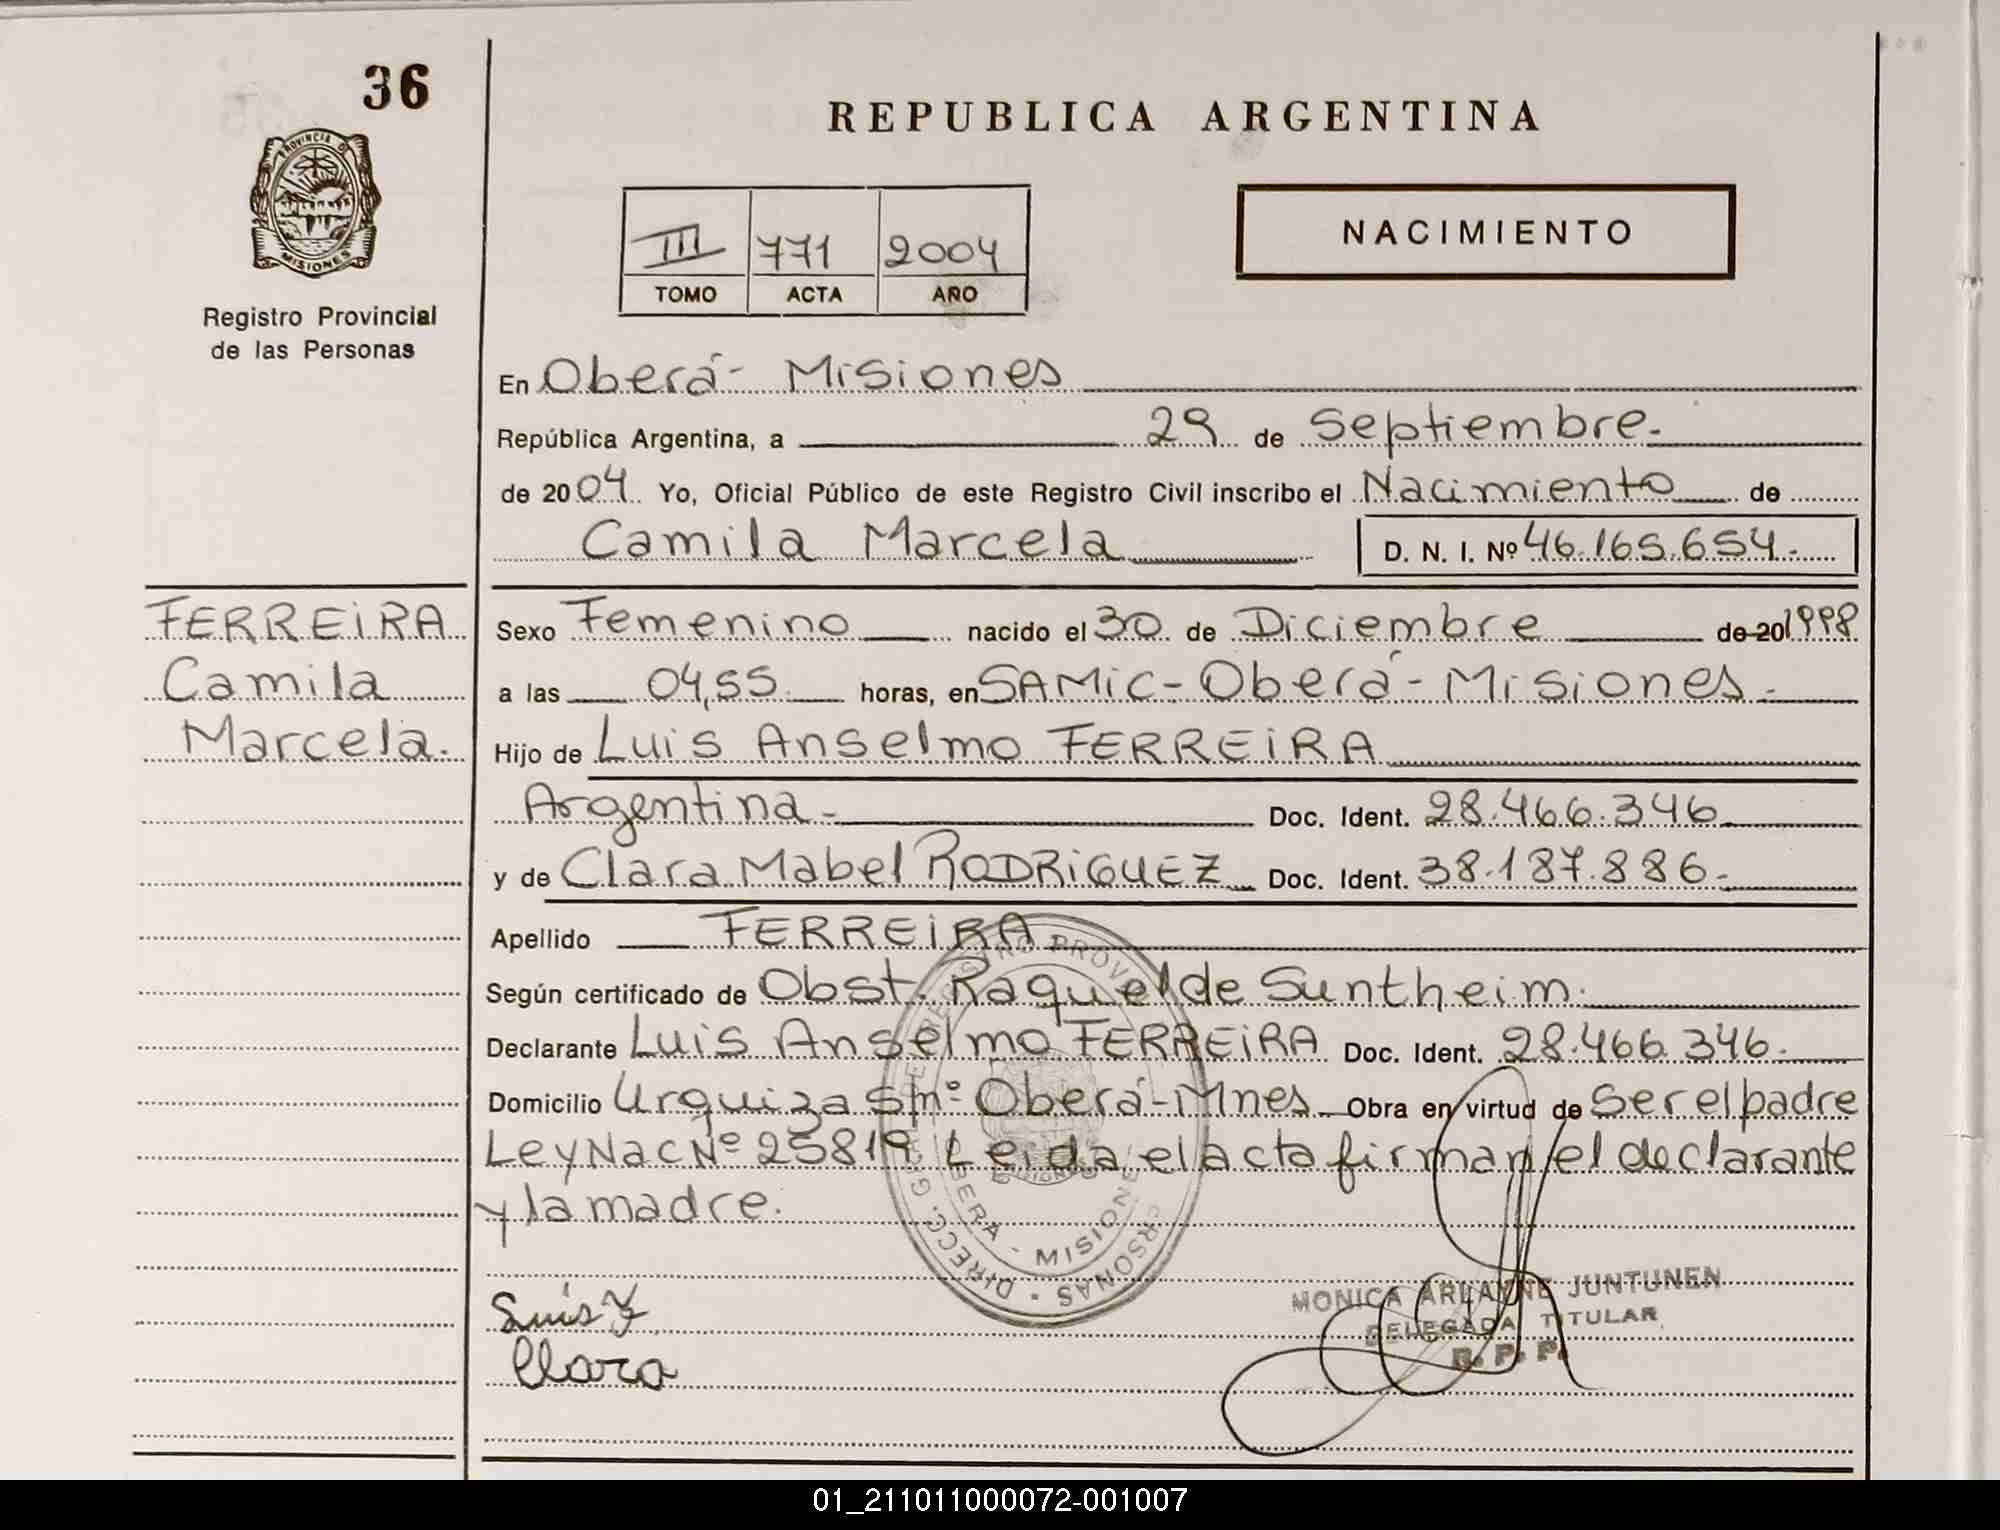 36
REPUBLICA ARGENTINA
PROVINCIA D
MISIONES
Registro Provincial
de las Personas
III 771 2004
TOMO ACTA AÑO
NACIMIENTO
En Oberá - Misiones
República Argentina, a 29 de Septiembre.
de 2004 Yo, Oficial Público de este Registro Civil inscribo el Nacimiento de
Camila Marcela D. N. I. Nº 46.165.654.
FERREIRA
Camila
Marcela.
Sexo Femenino nacido el 30 de Diciembre de 20 1998
a las 04,55 horas, en SAMiC - Oberá - Misiones.
Hijo de Luis Anselmo FERREIRA
Argentina Doc. Ident. 28.466.346
y de Clara Mabel RODRIGUEZ Doc. Ident. 38.187.886.
Apellido FERREIRA
Según certificado de Obst. Raquel de Suntheim.
Declarante Luis Anselmo FERREIRA Doc. Ident. 28.466.346.
Domicilio Urquiza S/nº Oberá - Mnes Obra en virtud de Ser el padre
Ley Nac Nº 25819 Leida el acta firman el declarante
y la madre.
OBERA - MISIONE
DIRECC. G
Luis F
Clara
MONICA ARLAYNE JUNTUNEN
DELEGADA TITULAR
R. P. P.
01_211011000072-001007